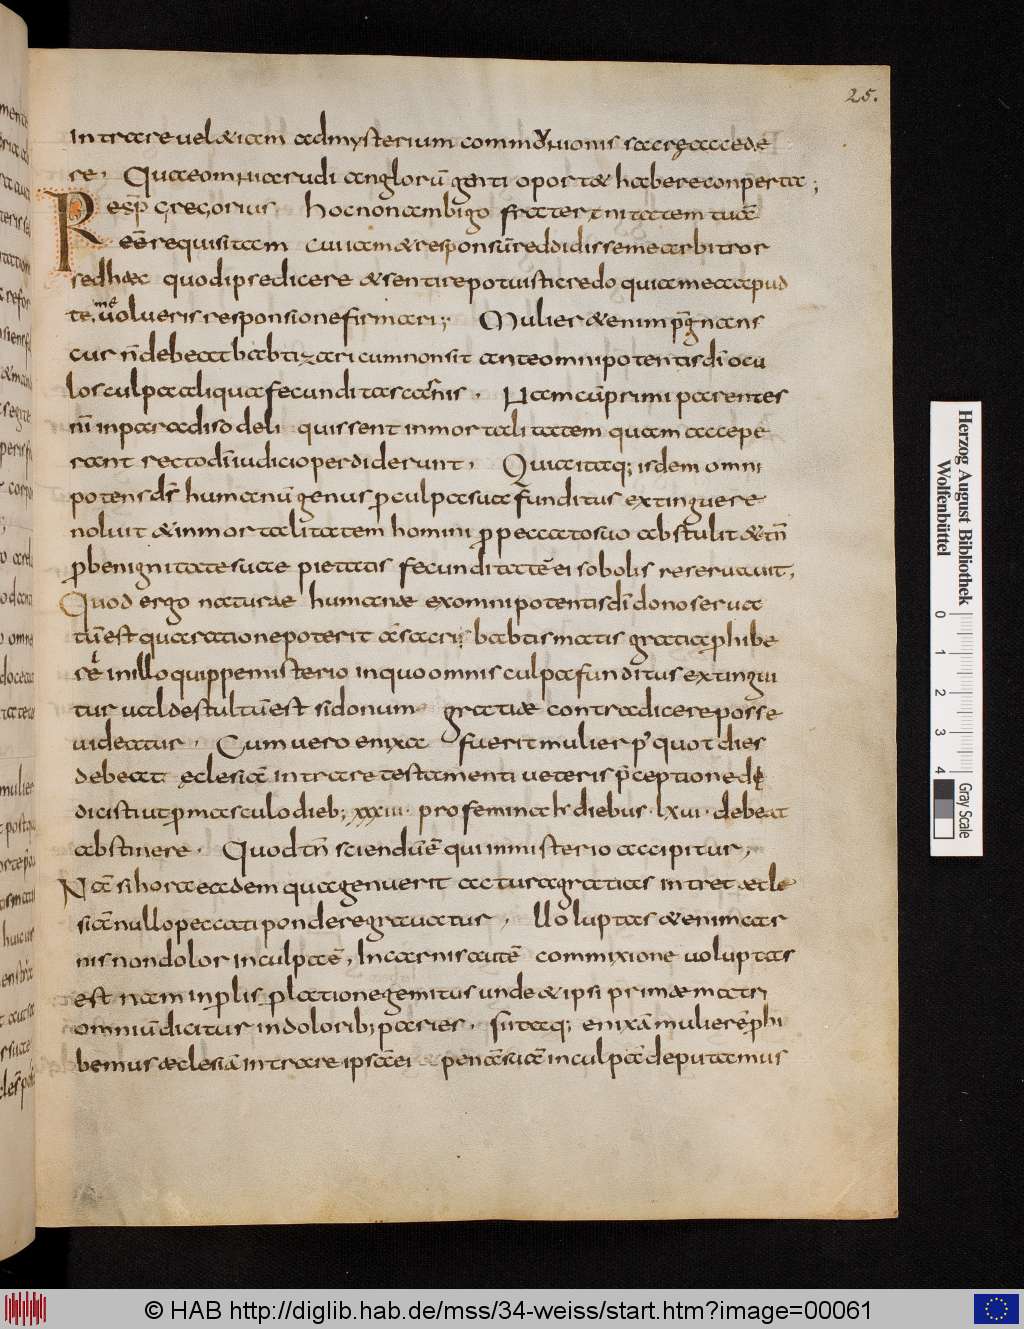 25.
intrare uel & iam ad mysterium commonionis sacrę accede
re, Quae om̅ia rudi anglorū genti oport& habere conperta;
Resp̄ Gregorius Hoc non ambigo frater̄nitatem tuā
eē requisitam cui iam & responsū reddidisse me arbitror
sed haec quod ipse dicere & sentire potuisti credo quia mea apud
te mē uolueris responsione firmari; Mulier & enim p̄gnans
cur n̄ debeat babtizari cum non sit ante omnipotentis dī ocu
los culpa aliqua fecunditas carnis, Nam cū primi parentes
nī in paradiso deli quissent inmortalitatem quam accepe
rant recto dī iudicio perdiderunt, Quia itaq; isdem omni
potens d̄s humanū genus p culpa sua funditus extinguere
noluit & inmortalitatem homini p peccato suo abstulit & tn̄
p benignitate suae pietatis fecunditatē ei sobolis reseruauit,
Quod ergo naturae humanae ex omnipotentis dī dono serua
tū est qua ratione poterit a sacri babtismatis gratia phibe
re in illo quippe misterio in quo omnis culpa funditus extingui
tur ualde stultū est si donum gratiae contradicere posse
uideatur, Cum uero enixa fuerit mulier p̄ quot dies
debeat ęclesiā intrare testamenti ueteris p̄ceptione di
dicisti ut p masculo dieb; xxxiii· pro femina h̄ diebus ·lxvi· debeat
abstinere, Quod tn̄ sciendū ē qui in misterio accipitur,
Nā si hora eadem qua genuerit actura gratias intret aecle
siā nullo peccati pondere grauatur, Uoluptas & enim car
nis non dolor in culpa ē, In carnis autē commixione uoluptas
est nam in plis platione gemitus unde & ipsi primae matri
omniū dicitur in dolorib; paries, si itaq; enixā mulierē phi
bemus aeclesiā intrare ipsā ei penā suā in culpā deputamus
Herzog August Bibliothek
Wolfenbüttel
0 1 2 3 4
Gray Scale
© HAB http://diglib.hab.de/mss/34-weiss/start.htm?image=00061